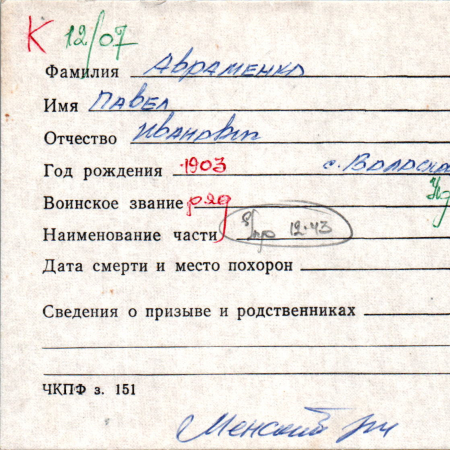 К 12/07
Фамилия Авраменко
Имя Павел
Отчество Иванович
Год рождения 1903 с. Волоско
Воинское звание ряд
Наименование части б/пр 12.43
Дата смерти и место похорон
Сведения о призыве и родственниках
ЧКПФ з. 151
Менский